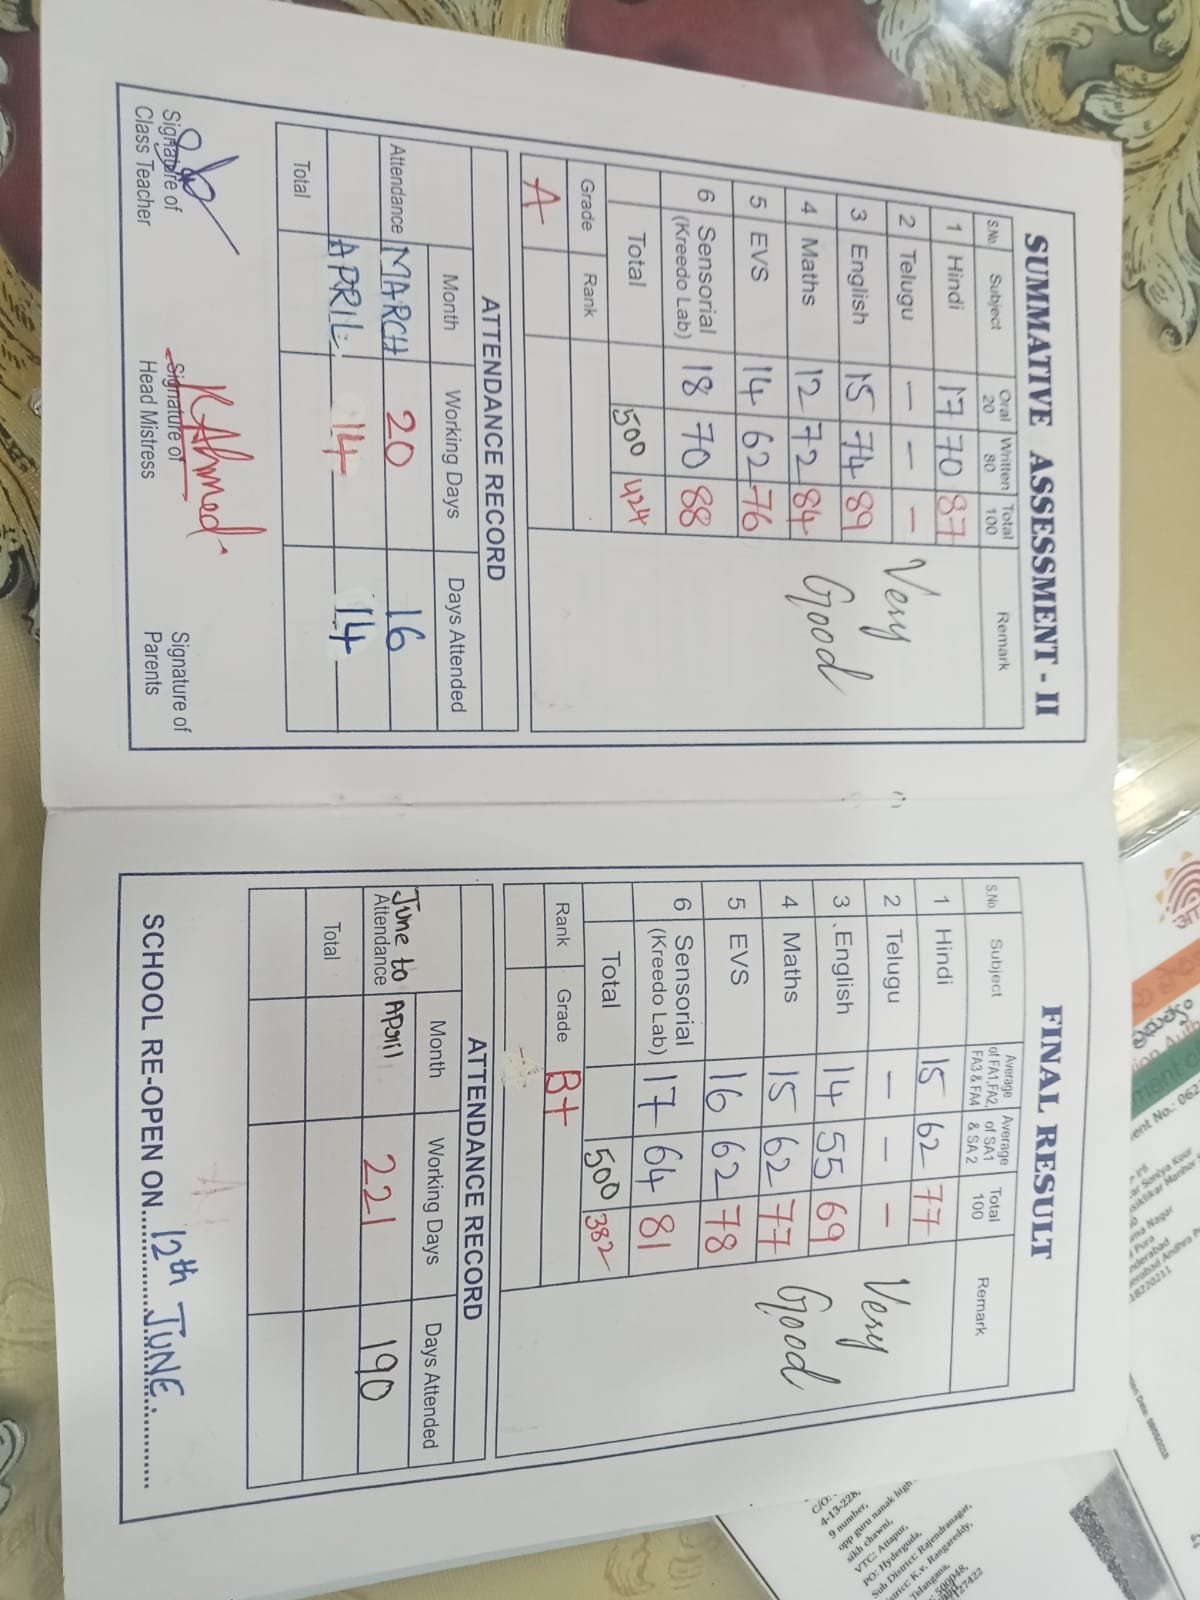 SUMMATIVE ASSESSMENT - II
S.No. Subject Oral 20 Written 80 Total 100 Remark
1 Hindi 17 70 87
2 Telugu - - -
3 English 15 74 89
4 Maths 12 72 84
5 EVS 14 62 76
6 Sensorial (Kreedo Lab) 18 70 88
Total 500 424
Very
Good
Grade Rank
A
ATTENDANCE RECORD
Month Working Days Days Attended
Attendance MARCH 20 16
APRIL. 14 14
Total
Signature of
Class Teacher
KAhmed
Signature of
Head Mistress
Signature of
Parents
FINAL RESULT
S.No. Subject Average of FA1,FA2, FA3 & FA4 Average of SA1 & SA 2 Total 100 Remark
1 Hindi 15 62 77
2 Telugu - - -
3 English 14 55 69
4 Maths 15 62 77
5 EVS 16 62 78
6 Sensorial (Kreedo Lab) 17 64 81
Total 500 382
Very
Good
Rank Grade B+
ATTENDANCE RECORD
Month Working Days Days Attended
Attendance June to April 221 190
Total
SCHOOL RE-OPEN ON 12th JUNE.
4-13-228,
9 number,
opp guru nanak high
sikh chawni,
VTC: Attapur,
PO: Hyderguda,
Sub District: Rajendranagar,
K.v. Rangareddy,
Telangana,